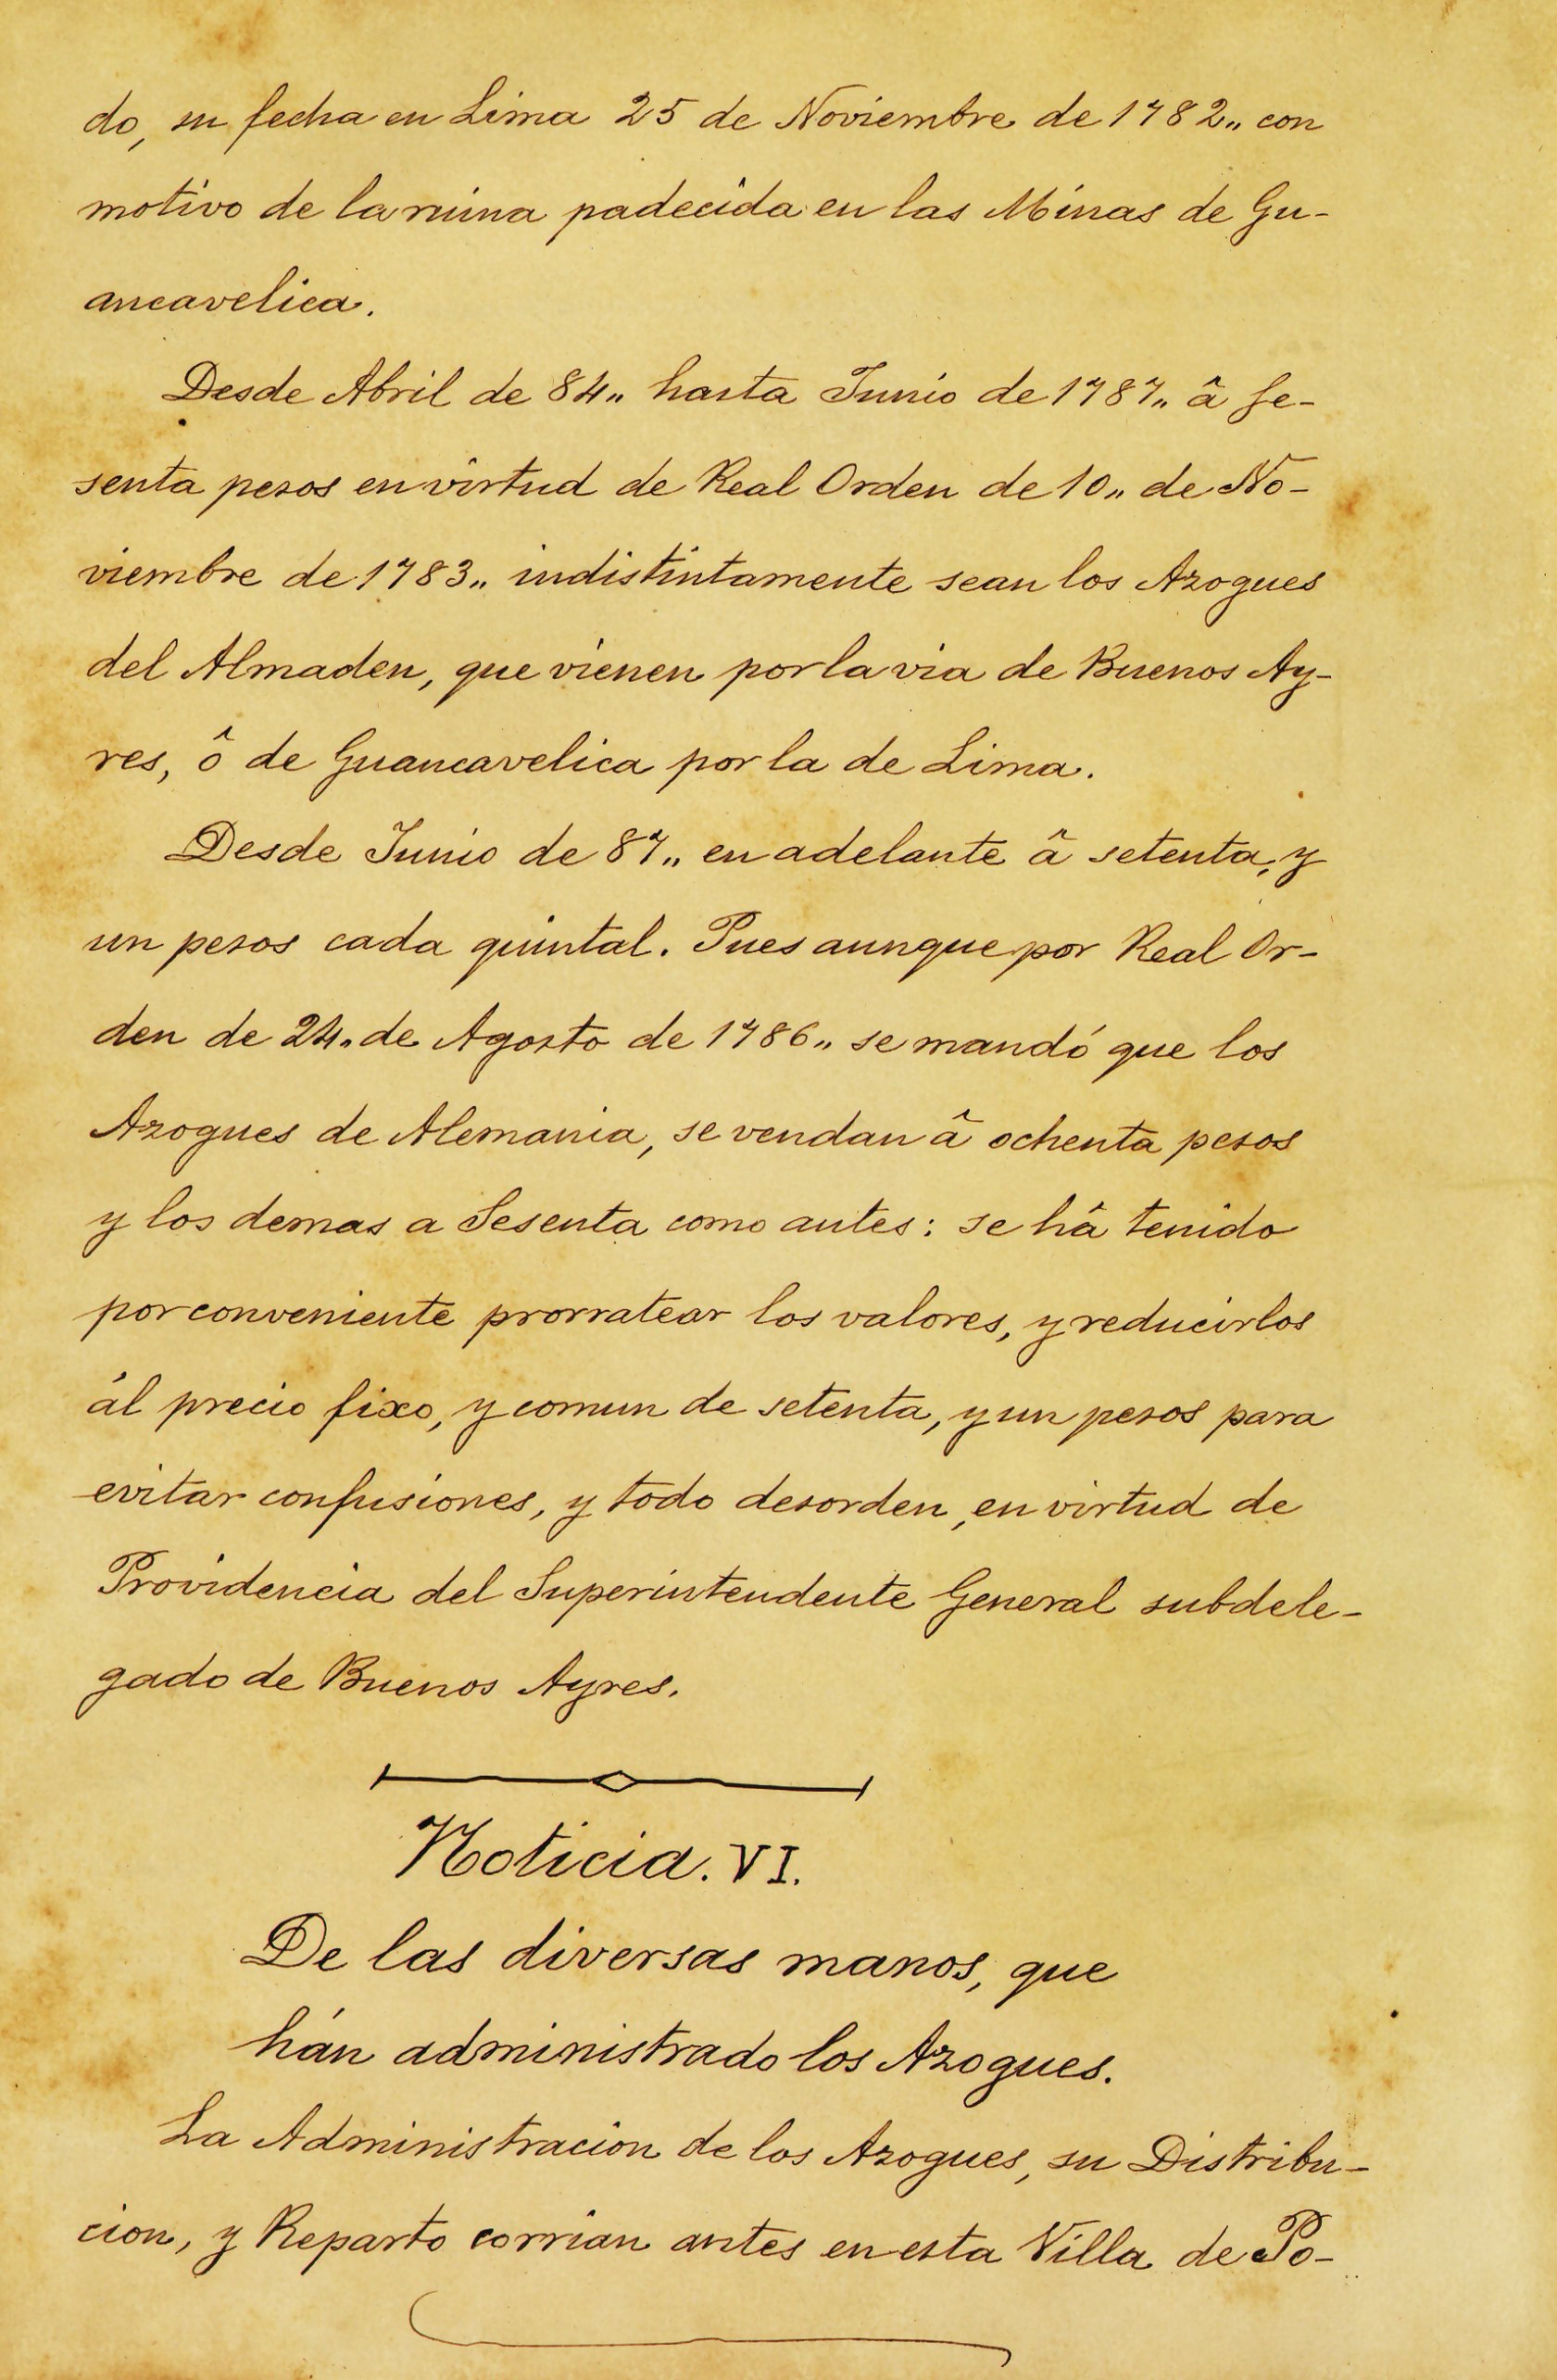 do, su fecha en Lima 25 de Noviembre de 1782„ con
motivo de la ruina padecida en las Minas de Gu-
ancavelica.
Desde Abril de 84„ hasta Junio de 1787„ â se-
senta pesos en virtud de Real Orden de 10„ de No-
viembre de 1783„ indistintamente sean los Azogues
del Almaden, que vienen por la via de Buenos Ay-
res, ô de Guancavelica por la de Lima.
Desde Junio de 87„ en adelante â setenta, y
un pesos cada quintal. Pues aunque por Real Or-
den de 24„ de Agosto de 1786„ se mandó que los
Azogues de Alemania, se vendan â ochenta pesos
y los demas a Sesenta como antes: se hâ tenido
por conveniente prorratear los valores, y reducirlos
ál precio fixo, y comun de setenta, y un pesos para
evitar confusiones, y todo desorden, en virtud de
Providencia del Superintendente General subdele-
gado de Buenos Ayres.
Noticia. VI.
De las diversas manos, que
hán administrado los Azogues.
La Administracion de los Azogues, su Distribu-
cion, y Reparto corrian antes en esta Villa de Po-